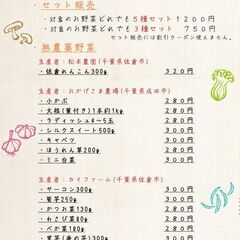 ・セット販売
・対象のお野菜どれでも5種セット 1200円
・対象のお野菜どれでも3種セット 750円
セット販売には割引クーポン使えません。
・無農薬野菜
生産者：松本農園(千葉県佐倉市)
・佐倉れんこん300g 320円
生産者：おかげさま農場(千葉県成田市)
・小かぶ 280円
・大根(葉付き)1本約1kg 280円
・ラディッシュ4〜5玉 280円
・シルクスイート500g 300円
・キャベツ 300円
・ほうれん草200g 280円
・ミニ白菜 300円
生産者：カイファーム(千葉県佐倉市)
・ヤーコン300g 300円
・菊芋250g 300円
・かつお菜130g 280円
・わさび菜80g 280円
・べか菜180g 280円